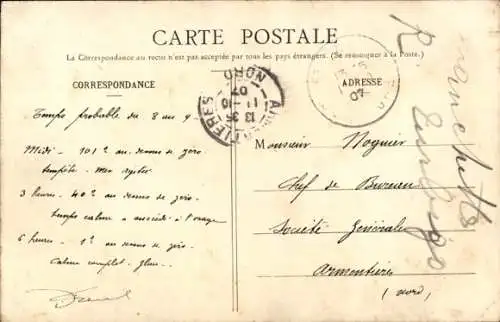 CARTE POSTALE
La Correspondance au recto n'est pas acceptée par tous les pays étrangers. (Se renseigner à la Poste.)
CORRESPONDANCE
ADRESSE
Temps probable du 8 au 9
Midi - 101° au dessus de zéro
tempête. Mer
3 heures - 40° au dessus de zéro
temps calme a succédé à l'orage
6 heures - 1° au dessus de zéro
Calme complet.
Monsieur Noguier
Chef de Bureau
Société Générale
Armentières
(Nord)
ARMENTIERES
13 35
11-10
07
NORD
07